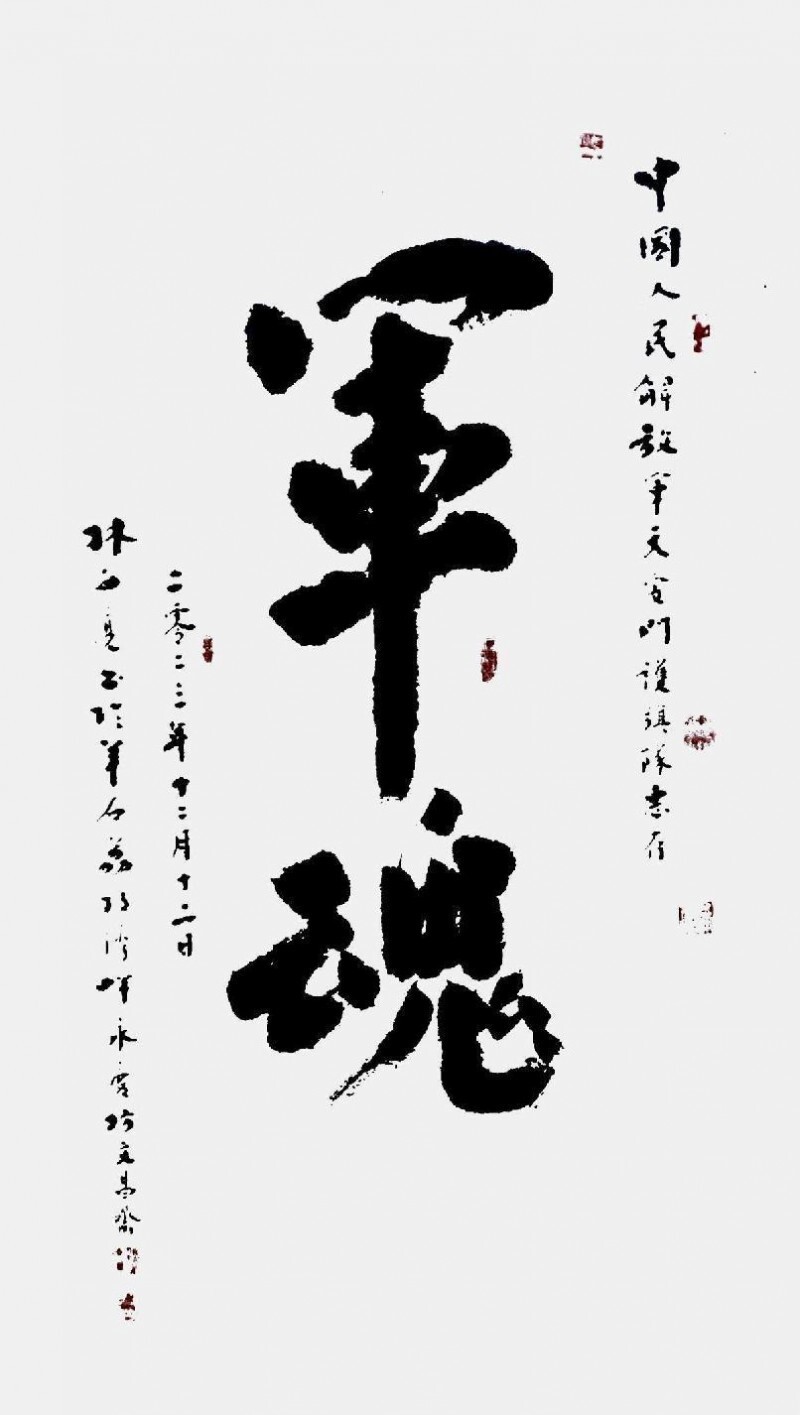 中國人民解放軍天安門護旗隊惠存
軍魂
二零二三年十二月十二日
林 書於羊石荔 灣畔永慶坊文昌齋